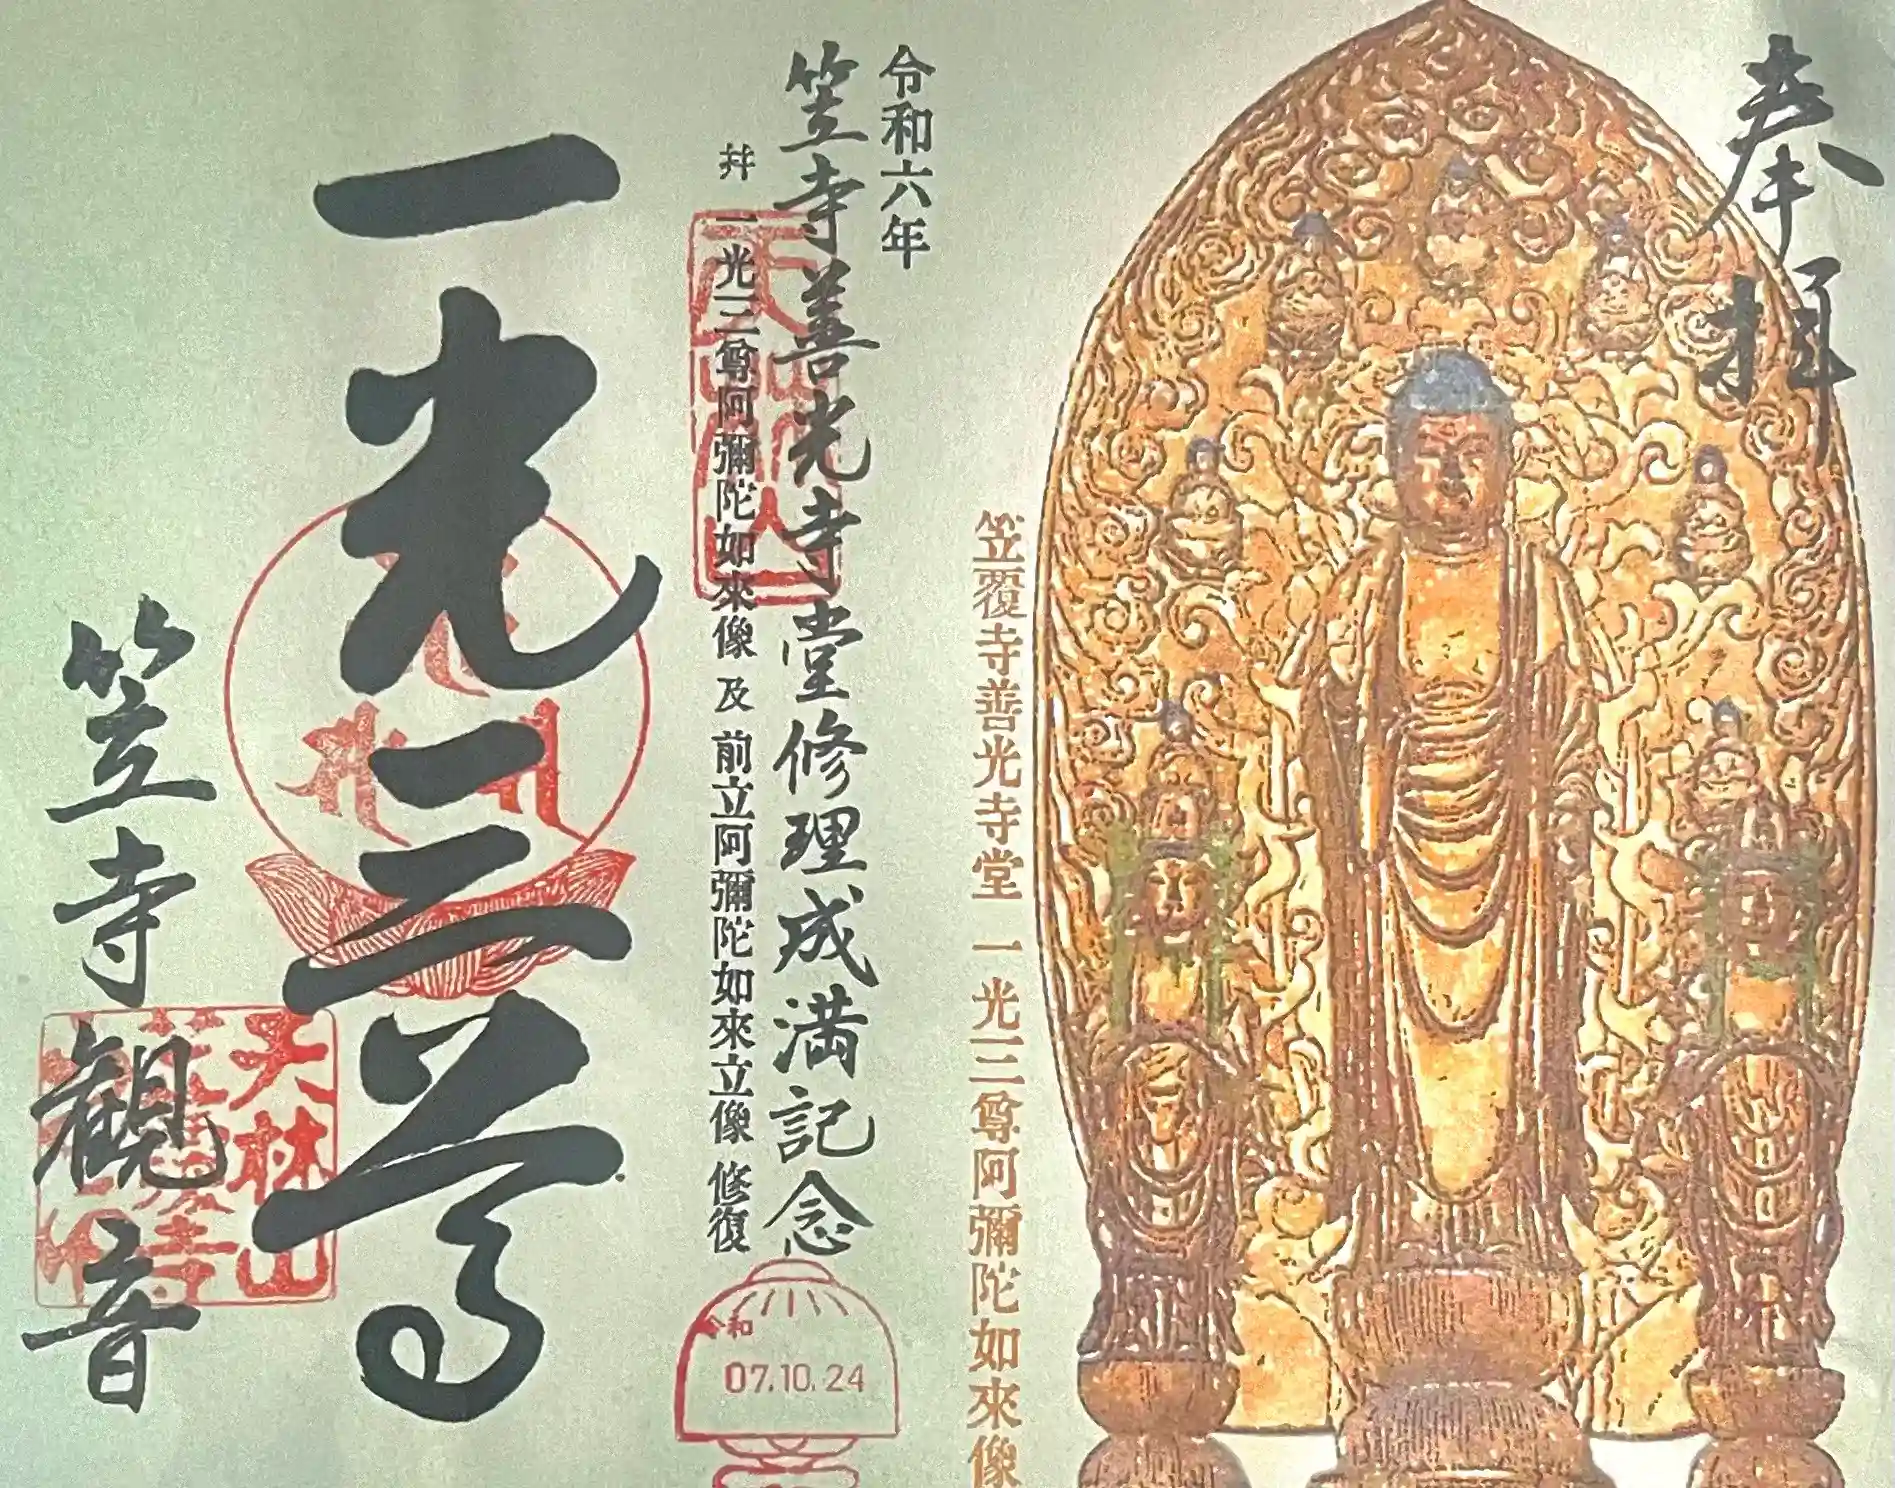 奉拝
笠覆寺善光寺堂 一光三尊阿彌陀如來像
令和六年
笠寺善光寺堂修理成満記念
并 一光三尊阿彌陀如來像 及 前立阿彌陀如來立像 修復
天林山
令和
07.10.24
一光三尊
笠寺観音
天林山